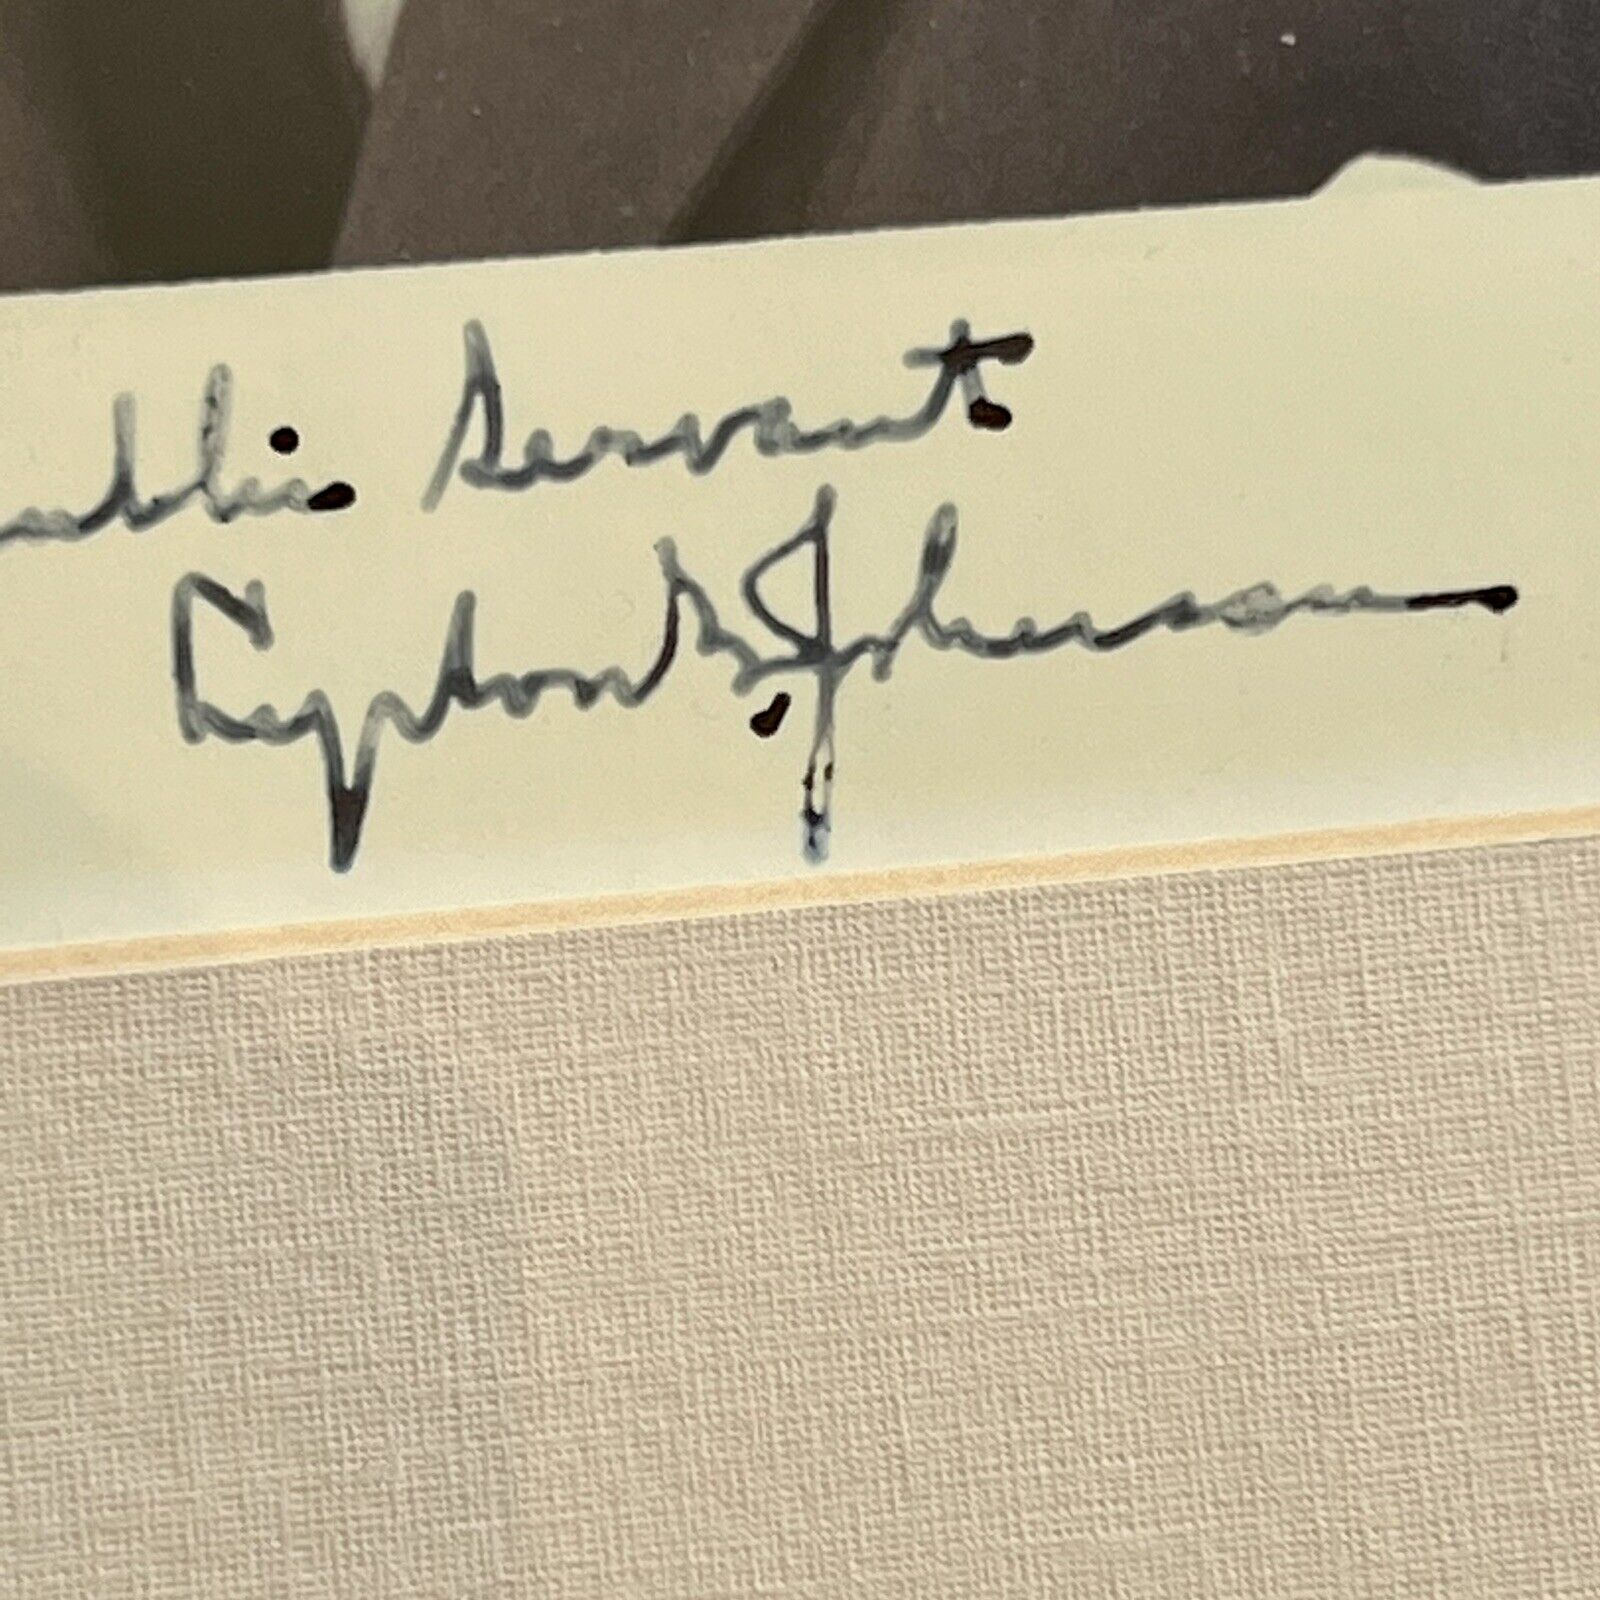 ublic Servant
Lyndon B. Johnson